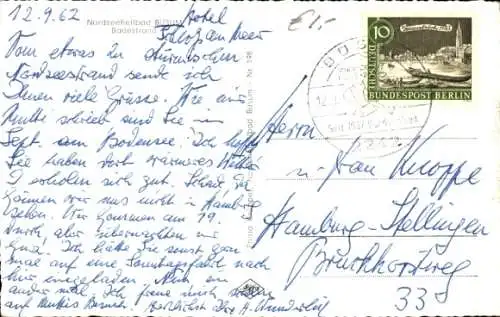 12.9.62
Nordseeheilbad BÜSUM
Badestrand
Hotel
Schloß am Meer
Vom etwas zu stürmischen
Nordseestrand sende ich
Ihnen viele Grüsse. Wie
Mutti schrieb sind Sie im
Sept. am Bodensee. Ich hoffe
Sie haben dort warmeres Wetter
u. erholen sich gut. Schade, da
können wir uns nicht in Hamburg
sehen. Wir kommen am 19.
durch aber übernachten
Ich hätte Sie sonst gern
mal auf eine Sonntagsfahrt nach
hier eingeladen. Nun ein
ander mal. Ich freue mich schon
auf Muttis Besuch. Herzlichst Ihre H.
€1,-
10
DEUTSCHE
BUNDESPOST BERLIN
Herrn
u. Frau Knoppe
Hamburg-Stellingen
Bruckhorstweg
33